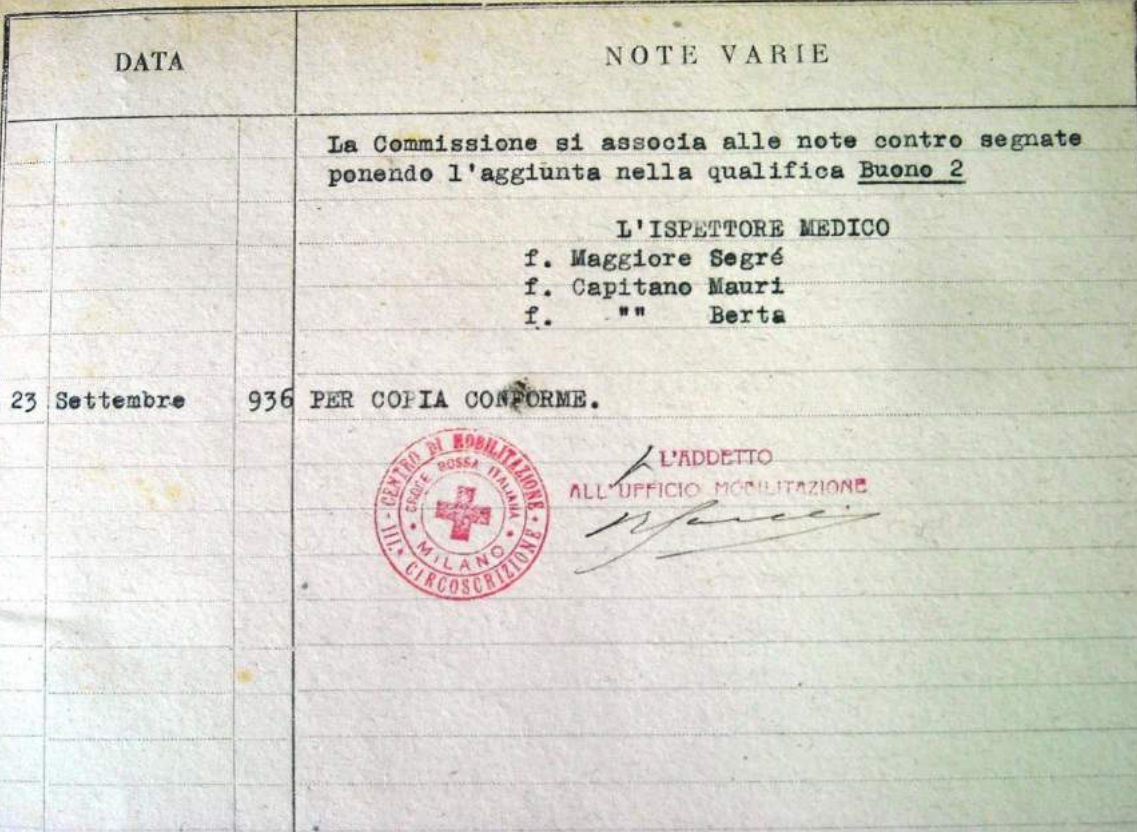 DATA
NOTE VARIE
La Commissione si associa alle note contro segnate
ponendo l'aggiunta nella qualifica Buono 2
L'ISPETTORE MEDICO
f. Maggiore Segré
f. Capitano Mauri
f. "" Berta
23 Settembre 936 PER COPIA CONFORME.
III.ª CENTRO DI MOBILITAZIONE · CIRCOSCRIZIONE
CROCE ROSSA ITALIANA
MILANO
L'ADDETTO
ALL'UFFICIO MOBILITAZIONE